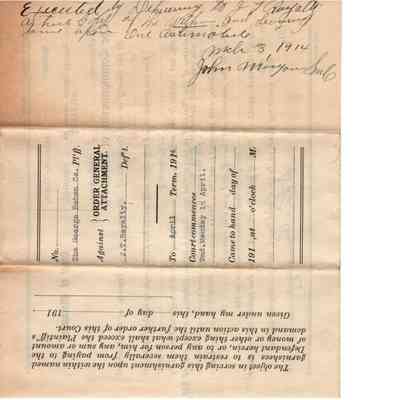 Executed by Delivering to J. T. Royalty
a of the and levying
same upon One automobile
Mch 3 1914
John
No.
The George Eaton Co. Pl'ff.
Against ORDER GENERAL ATTACHMENT.
J.T.Royalty. Def't.
To April Term, 1914
Court commences
2nd.Monday in April.
Came to hand day of
191 , at o'clock M.
The object in serving this garnishment upon the within named
garnishees is to restrain them severally from paying to the
Defendant therein, or to any person for him, any sum or amount
of money or other thing except what shall exceed the Plaintiff's
demand in this action until the further order of this Court.
Given under my hand, this day of 191